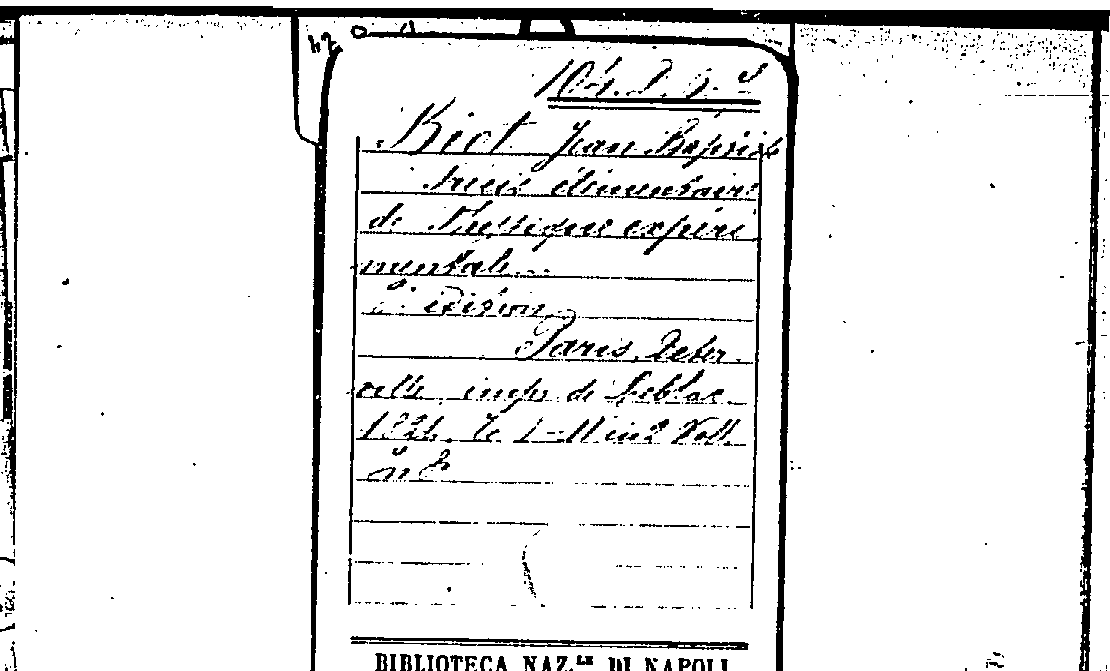 Biot Jean Baptiste
Précis élémentaire
de Physique expéri
mentale...
édition
Paris, Deter
ville, imp. de Leblanc
1824, Te I-II in 2 Voll
in 8
BIBLIOTECA NAZ.LE DI NAPOLI